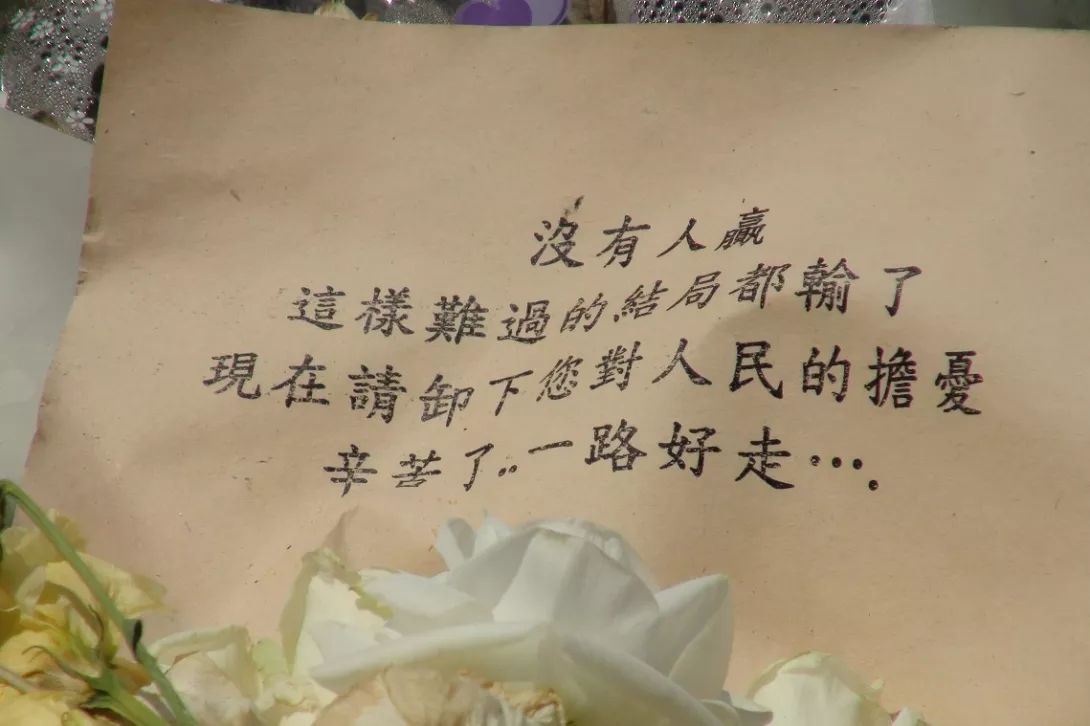 沒有人贏
這樣難過的結局都輸了
現在請卸下您對人民的擔憂
辛苦了..一路好走....